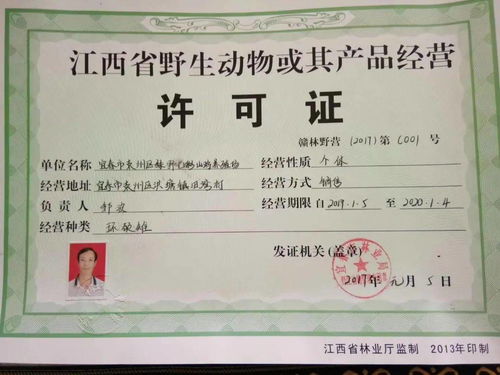 江西省野生动物或其产品经营
许可证
赣林野营 (2017) 第 6001 号
单位名称 宜春市袁州区 山鸡养殖场
经营性质 个体
经营地址 宜春市袁州区洪塘镇
经营方式 销售
负责人
经营期限 自 2017.1.5 至 2020.1.4
经营种类 环颈雉
发证机关(盖章)
林业局
2017年元月5日
江西省林业厅监制 2013年印制